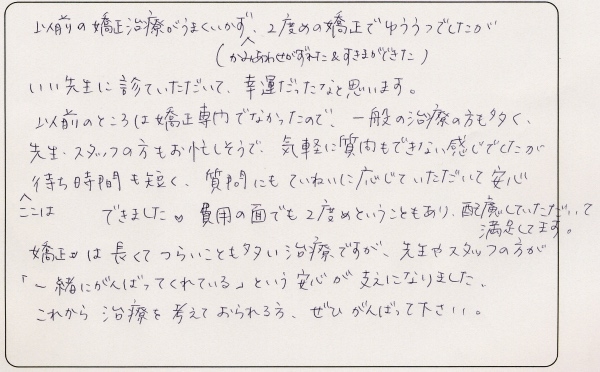 以前の矯正治療がうまくいかず、2度めの矯正でゆううつでしたが
(かみあわせがずれた&すきまができた)
いい先生に診ていただいて、幸運だったなと思います。
以前のところは矯正専門でなかったので、一般の治療の方も多く、
先生・スタッフの方もお忙しそうで、気軽に質問もできない感じでしたが
ここは
待ち時間も短く、質問にもていねいに応じていただいて安心
できました♥費用の面でも2度めということもあり、配慮していただいて
満足してます。
矯正は長くてつらいことも多い治療ですが、先生やスタッフの方が
「一緒にがんばってくれている」という安心が支えになりました。
これから治療を考えておられる方、ぜひがんばって下さい。